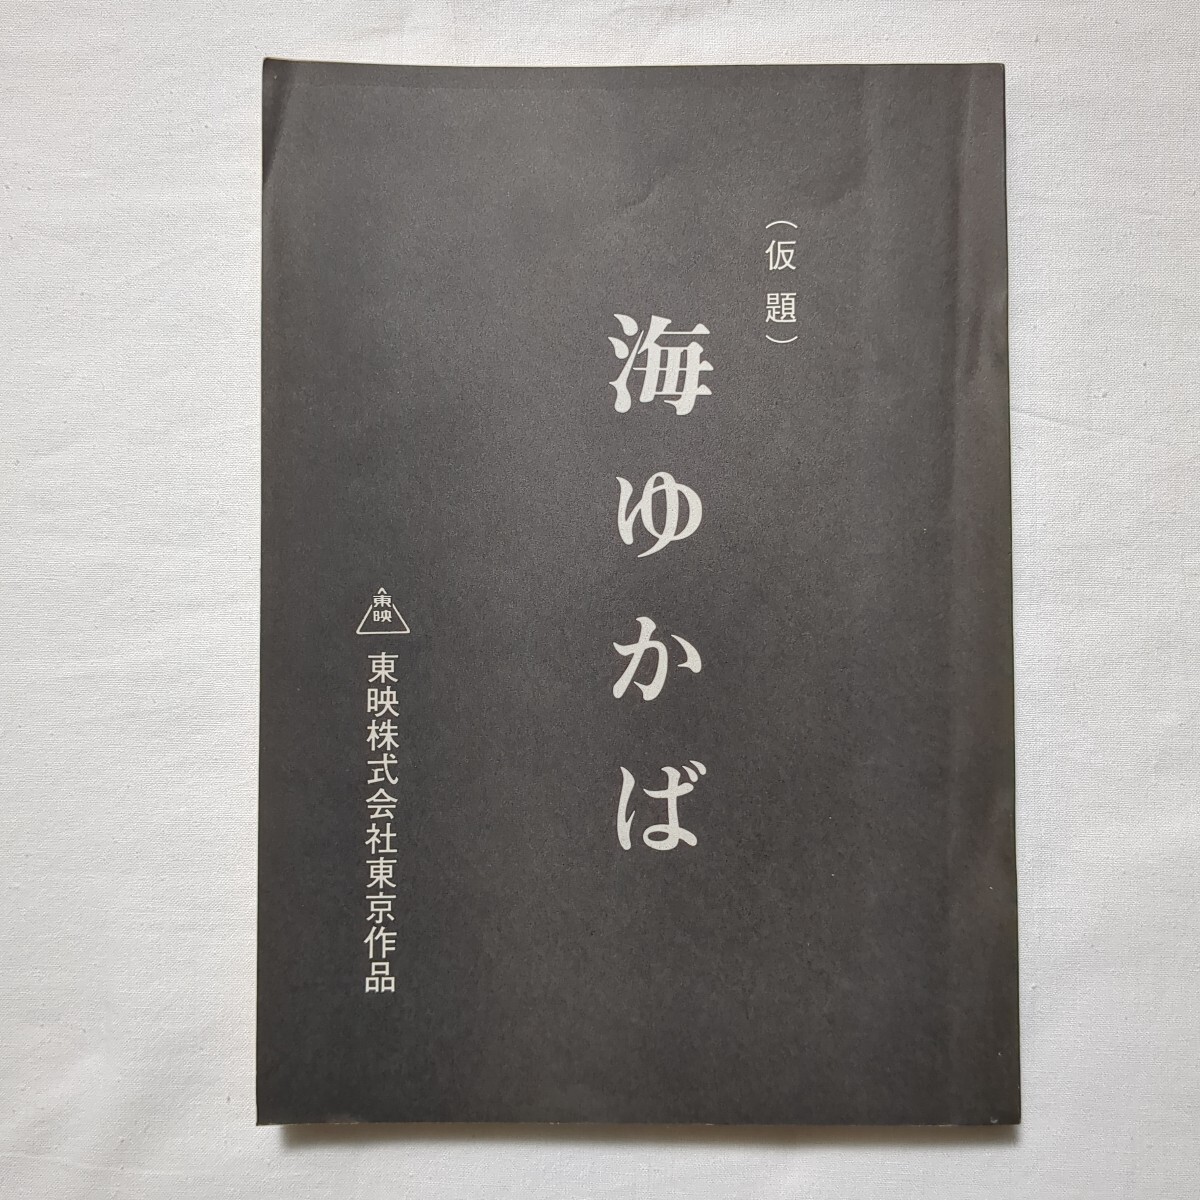 （仮題）
海ゆかば
東映
東映株式会社東京作品